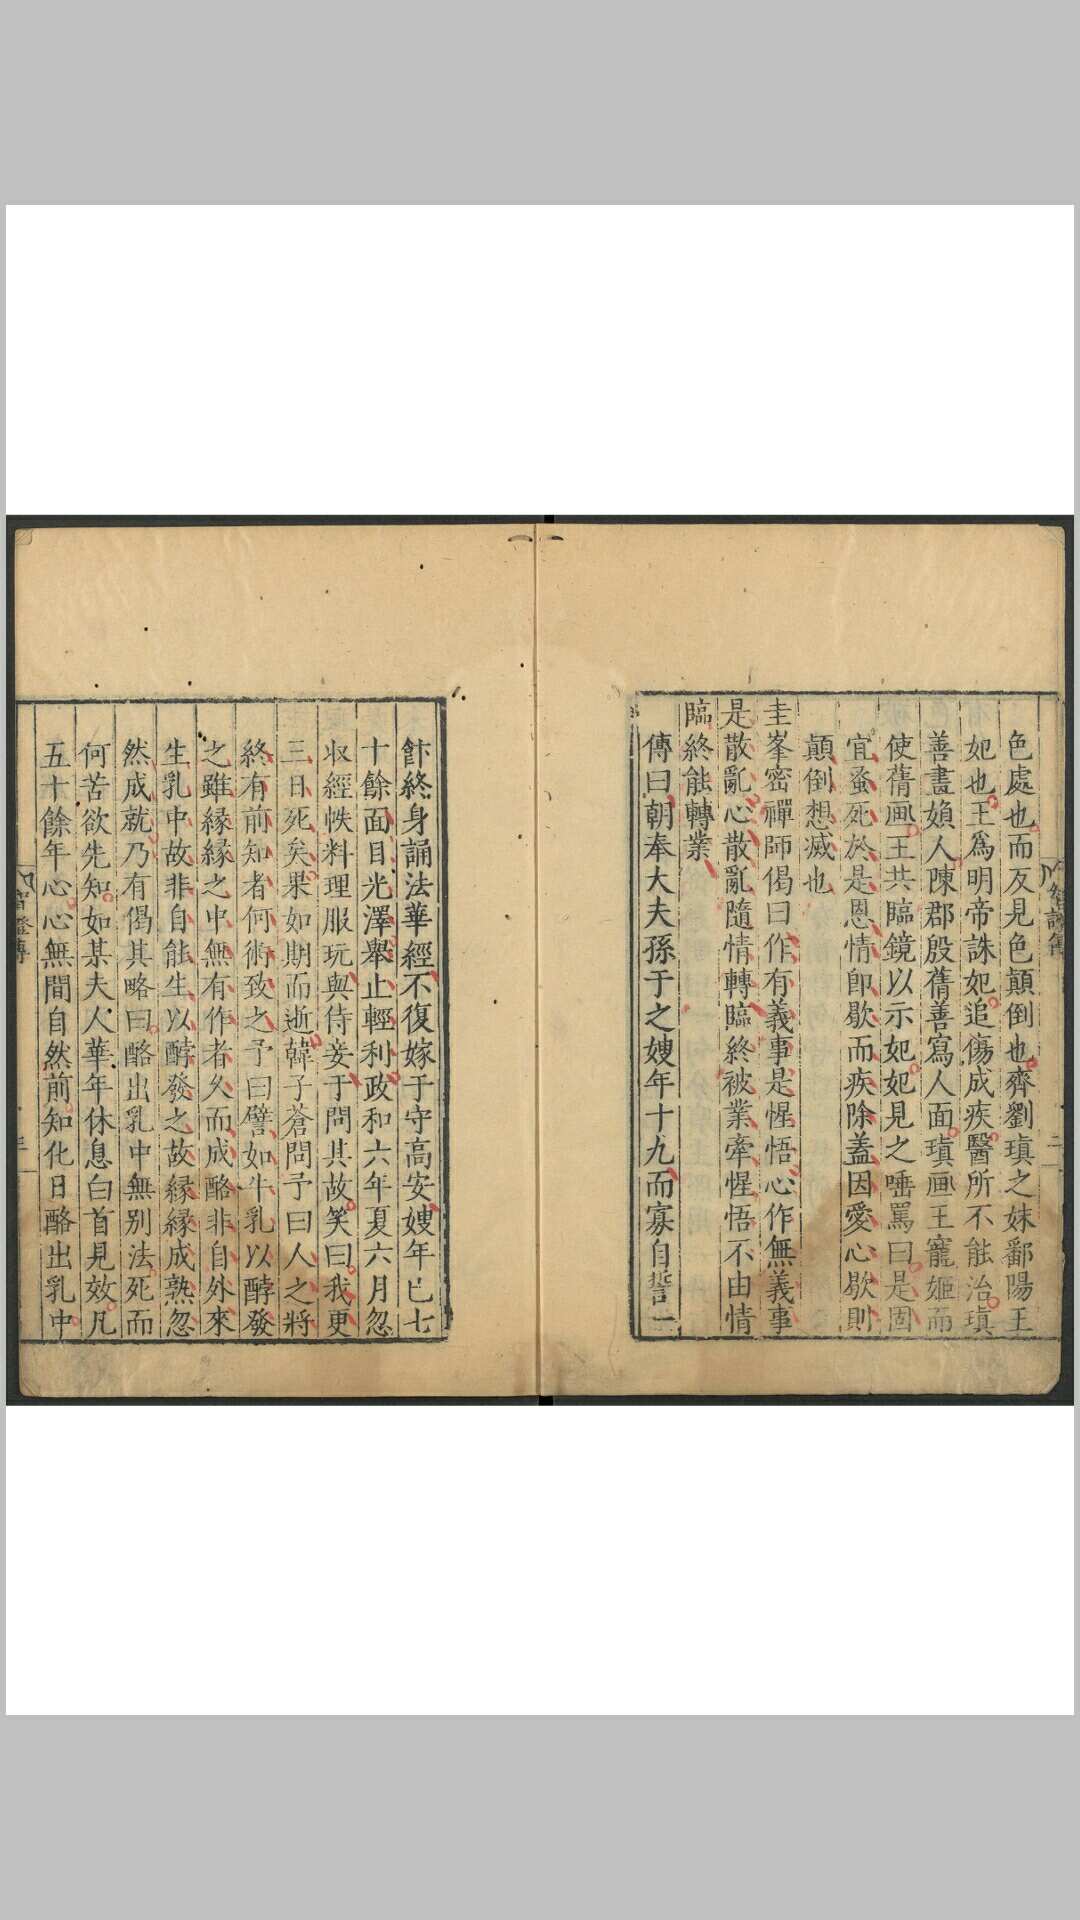 色處也而反見色顛倒也齊劉瑱之妹鄱陽王
妃也王為明帝誅妃追傷成疾醫所不能治瑱
善畫婦人陳郡殷蒨善寫人面瑱画王寵姬而
使蒨画王共臨鏡以示妃妃見之唾罵曰是固
宜蚤死於是恩情即歇而疾除蓋因愛心歇則
顛倒想滅也
圭峯密禪師偈曰作有義事是惺悟心作無義事
是散亂心散亂隨情轉臨終被業牽惺悟不由情
臨終能轉業
傳曰朝奉大夫孫于之嫂年十九而寡自誓一
飰終身誦法華經不復嫁于守高安嫂年已七
十餘面目光澤舉止輕利政和六年夏六月忽
収經帙料理服玩與侍妾于問其故笑曰我更
三日死矣果如期而逝韓子蒼問予曰人之將
終有前知者何術致之予曰譬如牛乳以酵發
之雖緣緣之中無有作者久而成酪非自外來
生乳中故非自能生以酵發之故緣緣成熟忽
然成就乃有偈其略曰酪出乳中無別法死而
何苦欲先知如某夫人華年休息白首見效凡
五十餘年心心無間自然前知化日酪出乳中
智證傳
二
智證傳